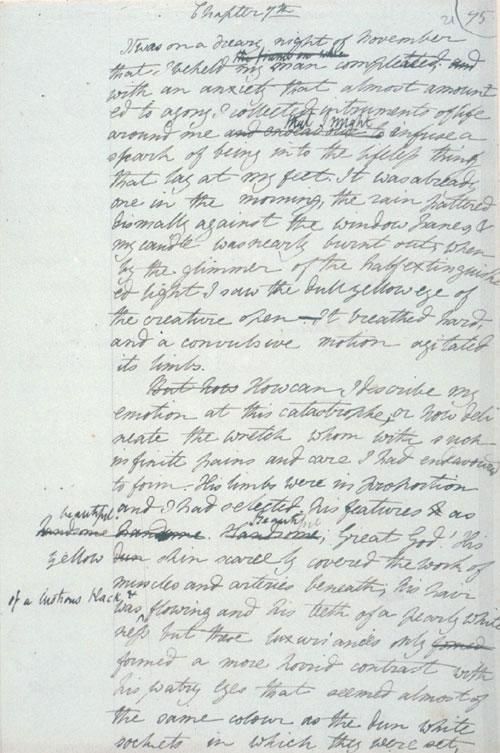 Chapter 7th
21 95
It was on a dreary night of November
the frame on whic
that I beheld my man compleated; and
with an anxiety that almost amount
ed to agony, I collected instruments of life
that I might
around me and endeavour to infuse a
spark of being into the lifeless thing
that lay at my feet. It was already
one in the morning, the rain pattered
dismally against the window panes, &
my candle was nearly burnt out, when
by the glimmer of the half extinguish
ed light I saw the dull yellow eye of
the creature open—It breathed hard,
and a convulsive motion agitated
its limbs.
But how How can I describe my
emotion at this catastrophe; or how deli
neate the wretch whom with such
infinite pains and care I had endeavoured
to form. His limbs were in proportion
and I had selected his features as
beautiful. Beautiful
handsome handsome. Handsome; Great God! His
yellow dun skin scarcely covered the work of
muscles and arteries beneath; his hair
of a lustrous black, &
was flowing and his teeth of a pearly white
ness but these luxuriances only formed
formed a more horrid contrast with
his watry eyes that seemed almost of
the same colour as the dun white
sockets in which they were set